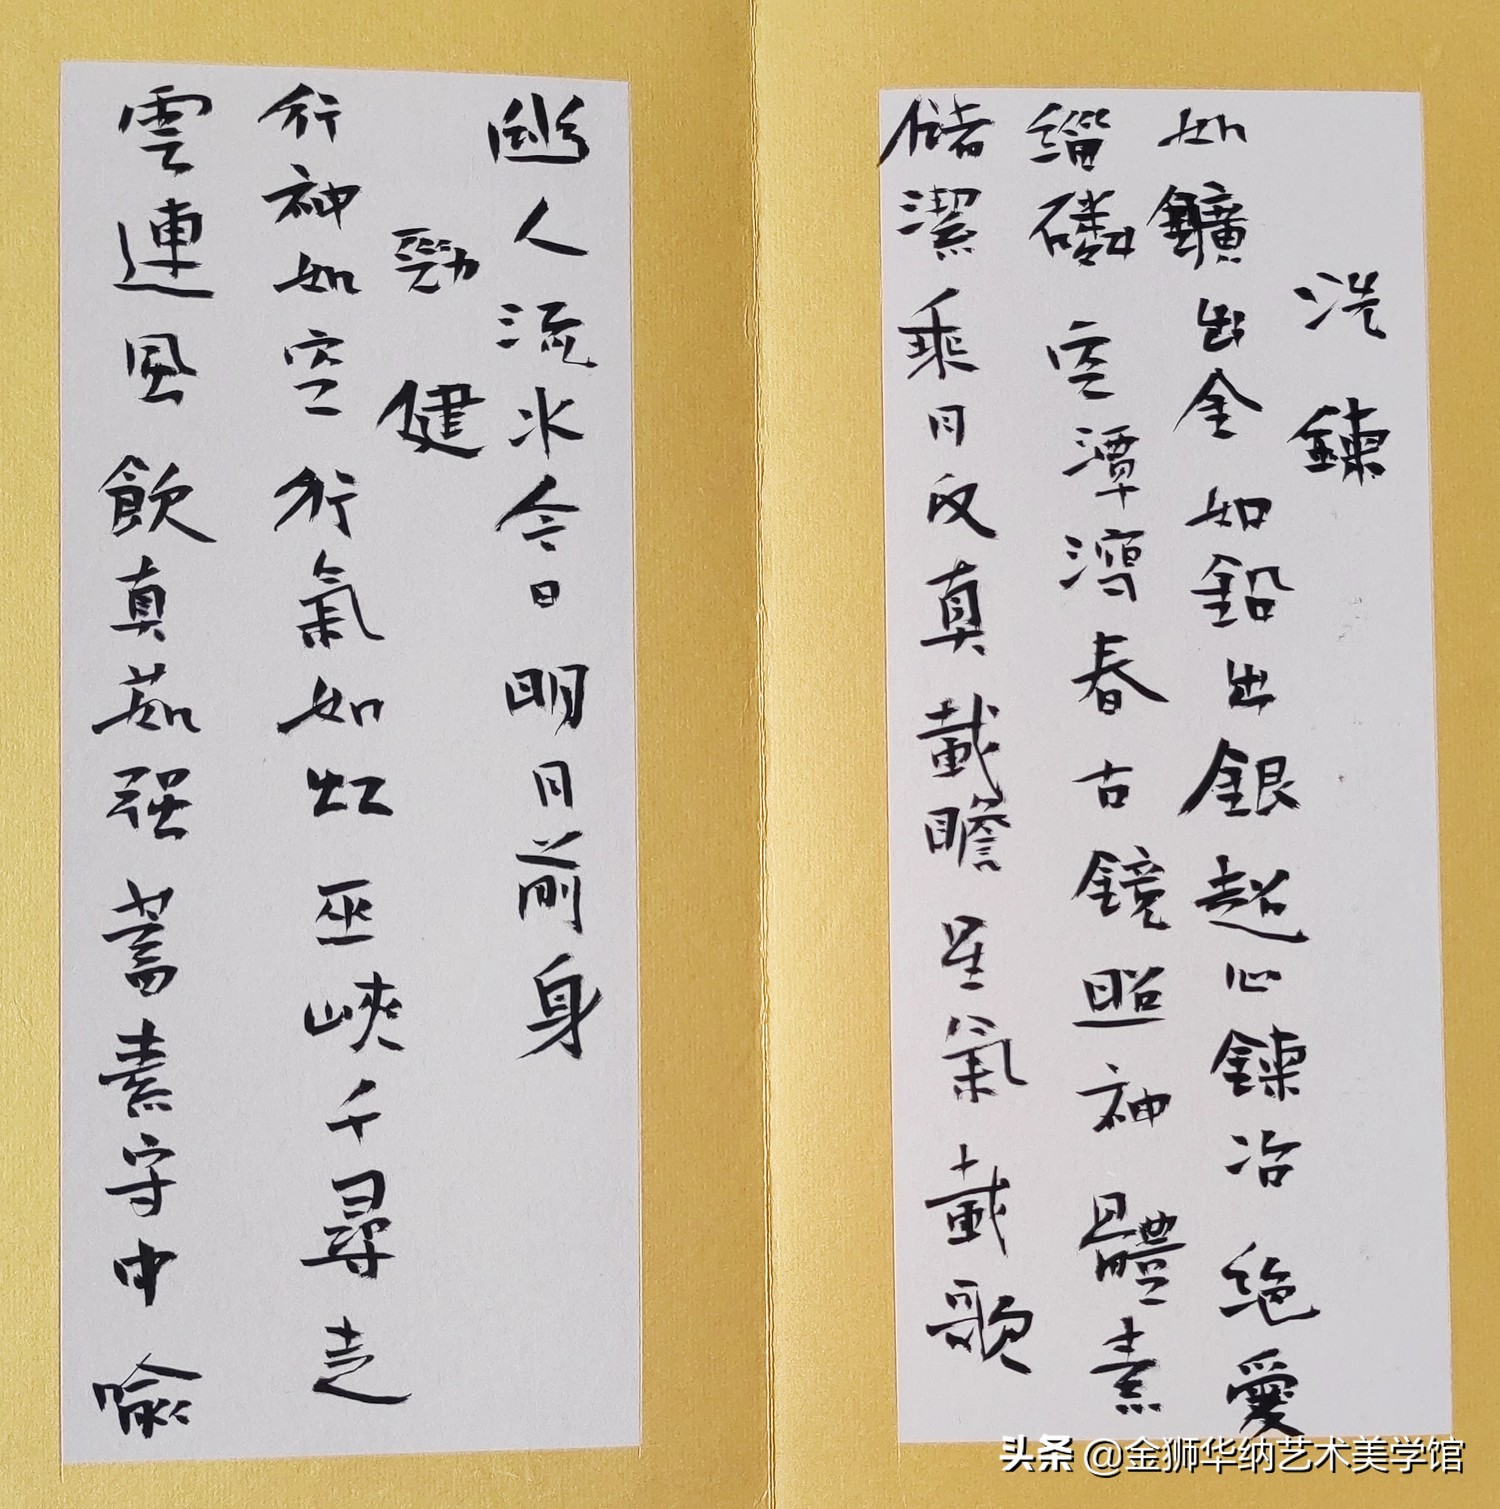 洗鍊
如鑛出金如鉛出銀超心鍊冶絶愛
緇磷空潭瀉春古鏡照神體素
儲潔乘月反真載瞻星氣載歌
幽人流水今日明月前身
勁健
行神如空行氣如虹巫峽千尋走
雲連風飲真茹强蓄素守中喻
头条 @金狮华纳艺术美学馆